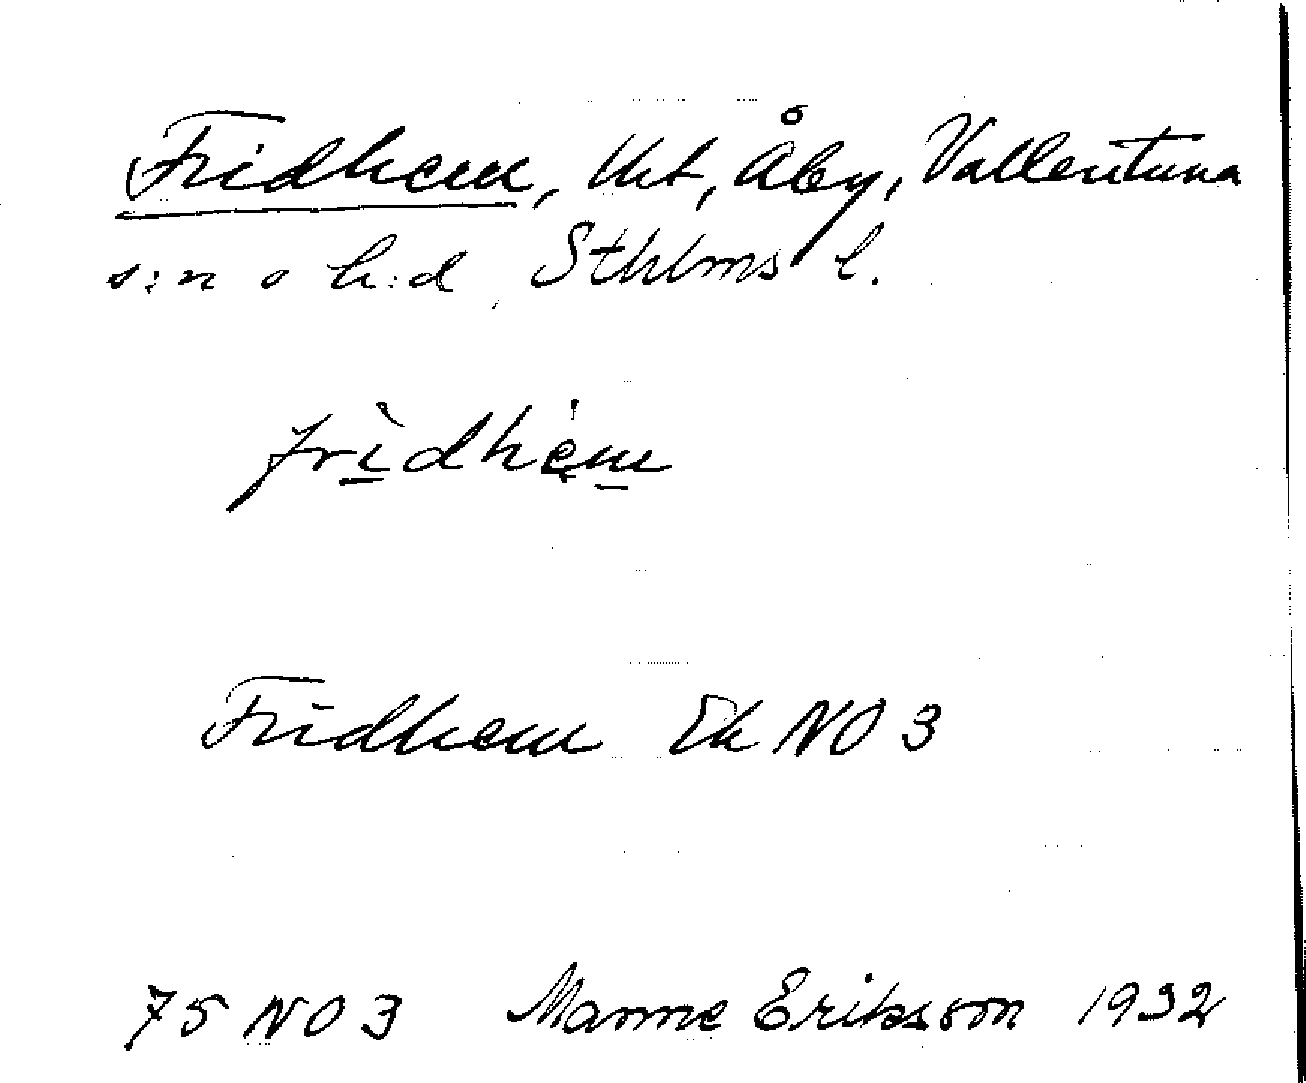 Fridhem, lht, Åby, Vallentuna
s:n o h:d, Sthlms l.
fri̱dhem̱
Fridhem Ek NO 3
75 NO 3 Manne Eriksson 1932